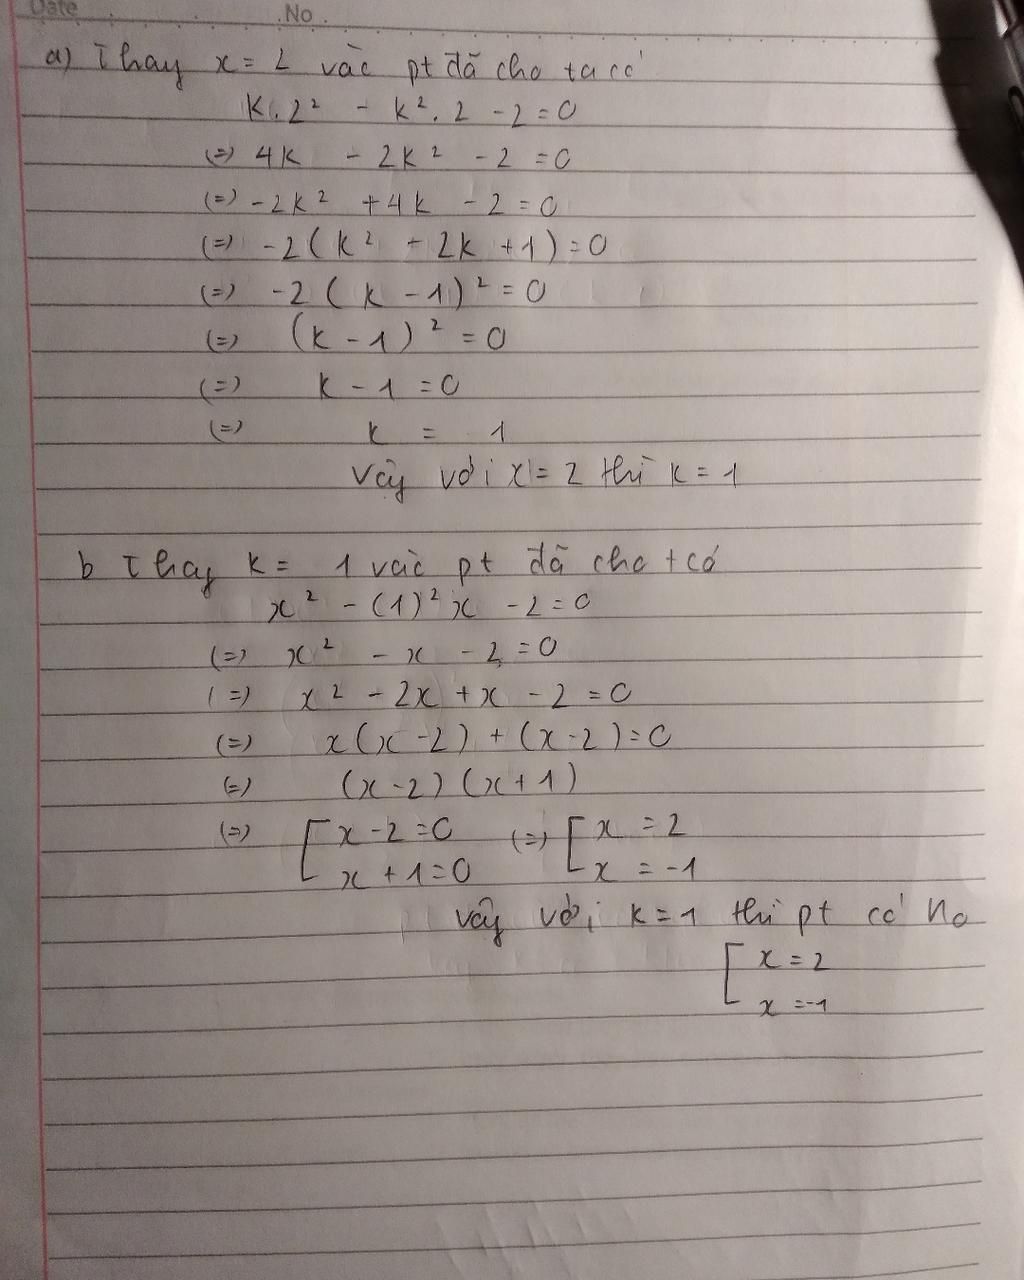 Date No.
a) Thay x = 2 vào pt đã cho ta có
k.2² - k².2 - 2 = 0
(=) 4k - 2k² - 2 = 0
(=) -2k² + 4k - 2 = 0
(=) -2(k² - 2k + 1) = 0
(=) -2(k - 1)² = 0
(=) (k - 1)² = 0
(=) k - 1 = 0
(=) k = 1
Vậy với x = 2 thì k = 1
b Thay k = 1 vào pt đã cho t có
x² - (1)²x - 2 = 0
(=) x² - x - 2 = 0
(=) x² - 2x + x - 2 = 0
(=) x(x - 2) + (x - 2) = 0
(=) (x - 2)(x + 1)
(=) [ x - 2 = 0 (=) [ x = 2
x + 1 = 0 x = -1
Vậy với k = 1 thì pt có no
[ x = 2
x = -1